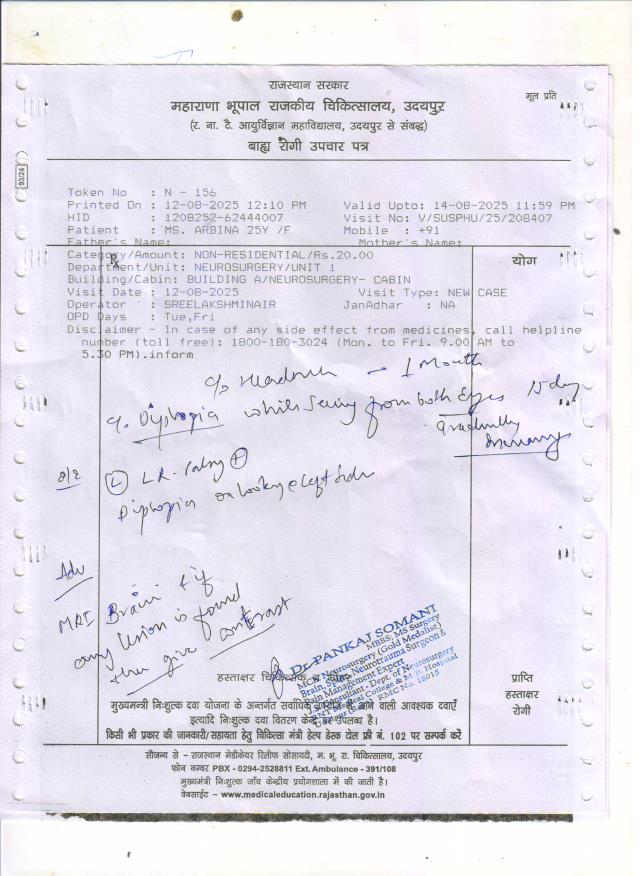 राजस्थान सरकार
महाराणा भूपाल राजकीय चिकित्सालय, उदयपुर
मूल प्रति
(र. ना. टै. आयुर्विज्ञान महाविद्यालय, उदयपुर से संबद्ध)
बाह्य रोगी उपचार पत्र
93/24
Token No : N - 156
Printed On : 12-08-2025 12:10 PM Valid Upto: 14-08-2025 11:59 PM
HID : 1208252-62444007 Visit No: V/SUSPHU/25/208407
Patient : MS. ARBINA 25Y /F Mobile : +91
Father's Name: Mother's Name:
Category/Amount: NON-RESIDENTIAL/Rs.20.00
Rx योग
Department/Unit: NEUROSURGERY/UNIT 1
Building/Cabin: BUILDING A/NEUROSURGERY- CABIN
Visit Date : 12-08-2025 Visit Type: NEW CASE
Operator : SREELAKSHMINAIR JanAdhar : NA
OPD Days : Tue,Fri
Disclaimer - In case of any side effect from medicines, call helpline
number (toll free): 1800-180-3024 (Mon. to Fri. 9.00 AM to
5.30 PM).inform
c/o Headache - 1 Month
c/o Diplopia while seeing from both Eyes 15 day
gradually
o/e (L) LR-Palsy +
Diplopia on looking left side
Adv
MRI Brain & if
any lesion is found
then give contrast
Dr. PANKAJ SOMANI
MBBS, MS Surgery
MCh Neurosurgery (Gold Medalist)
Brain, Spine, Neurotrauma Surgeon &
Pain Management Expert
Consultant - Dept. of Neurosurgery
RNT Medical College & M.B. Hospital
Udaipur (Raj.) RMC No. 18015
हस्ताक्षर
प्राप्ति
हस्ताक्षर
रोगी
मुख्यमंत्री निःशुल्क दवा योजना के अन्तर्गत सर्वाधिक उपयोग में आने वाली आवश्यक दवाएँ
इत्यादि निःशुल्क दवा वितरण केन्द्र पर उपलब्ध है।
किसी भी प्रकार की जानकारी/सहायता हेतु चिकित्सा मंत्री हेल्प डेस्क टोल फ्री नं. 102 पर सम्पर्क करें
सौजन्य से - राजस्थान मेडीकेयर रिलीफ सोसायटी, म. भू. रा. चिकित्सालय, उदयपुर
फोन नम्बर PBX - 0294-2528811 Ext. Ambulance - 391/108
मुख्यमंत्री निःशुल्क जाँच केन्द्रीय प्रयोगशाला में की जाती है।
वेबसाईट - www.medicaleducation.rajasthan.gov.in